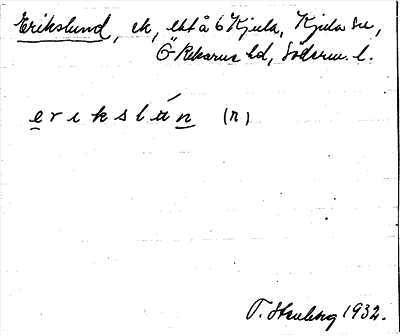 Erikslund, ek, lht å 6 Kjula, Kjula sn,
Ö-Rekarne hd, Söderm. l.
e r i k s l ú n (n)
T. Stenberg 1932.